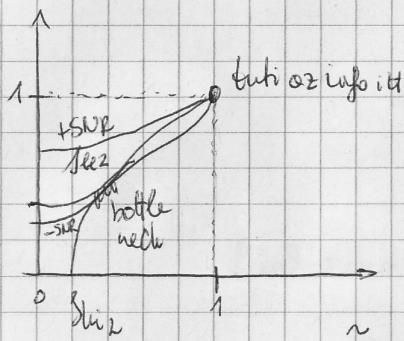 1
tuti az info itt
+SNR
bottle
neck
-SNR
0
1